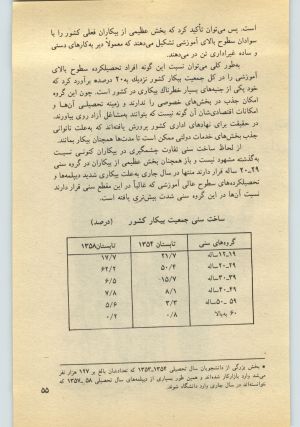 است. پس می‌توان تأکید کرد که بخش عظیمی از بیکاران فعلی کشور را با
سوادان سطوح بالای آموزشی تشکیل می‌دهند که معمولاً دیر به‌کارهای دستی
و ساده غیراداری تن در می‌دهند.
به‌طور کلی می‌توان نسبت این گونه افراد تحصیلکرده سطوح بالای
آموزشی را در کل جمعیت بیکار کشور نزدیك به۲۰ درصدء برآورد کرد که
خود یکی از جنبه‌های بسیار خطرناك بیکاری در کشور است. چون این گروه
امکان جذب در بخش‌های خصوصی را ندارند و زمینه تحصیلی آن‌ها و
امکانات اقتصادی‌شان آن گونه نیست که بتوانند به‌مشاغل آزاد روی بیاورند.
در حقیقت برای نهادهای اداری کشور پرورش یافته‌اند که به‌علت ناتوانی
جذب بخش‌های خدمات دولتی ممکن است تا مدت‌ها همچنان بیکار بمانند.
از لحاظ ساخت سنی تفاوت چشمگیری در بیکاران کنونی نسبت
به‌گذشته مشهود نیست و باز همچنان بخش عظیمی از بیکاران در گروه سنی
۲۹ــ۲۰ ساله قرار دارند منتها در سال جاری به‌علت بیکاری شدید دیپلمه‌ها و
تحصیلکرده‌های سطوح عالی آموزشی که غالباً در این مقطع سنی قرار دارند
نسبت آن‌ها در این گروه سنی شدت بیش‌تری یافته است.
ساخت سنی جمعیت بیکار کشور (درصد)
گروه‌های سنی تابستان ۱۳۵۴ تابستان۱۳۵۸
۱۹ــ۱۲ساله ۲۱/۷ ۱۷/۷
۲۹ــ۲۰ساله ۵۰/۴ ۶۲/۲
۳۹ــ۳۰ساله ۱۵/۷ ۶/۵
۴۹ــ۴۰ساله ۸/۱ ۷/۸
۵۹ ــ۵۰ساله ۳/۳ ۵/۶
۶۰ به‌بالا ۰/۸ ۰/۲
* بخش بزرگی از دانشجویان سال تحصیلی ۱۳۵۴ــ۱۳۵۳ که تعدادشان بالغ بر ۱۹۷ هزار نفر
می‌شد وارد بازارکار شده‌اند و همین طور بسیاری از دیپلمه‌های سال تحصیلی ۵۸ ــ۱۳۵۷ که
نتوانسته‌اند در سال جاری وارد دانشگاه شوند.
۵۵